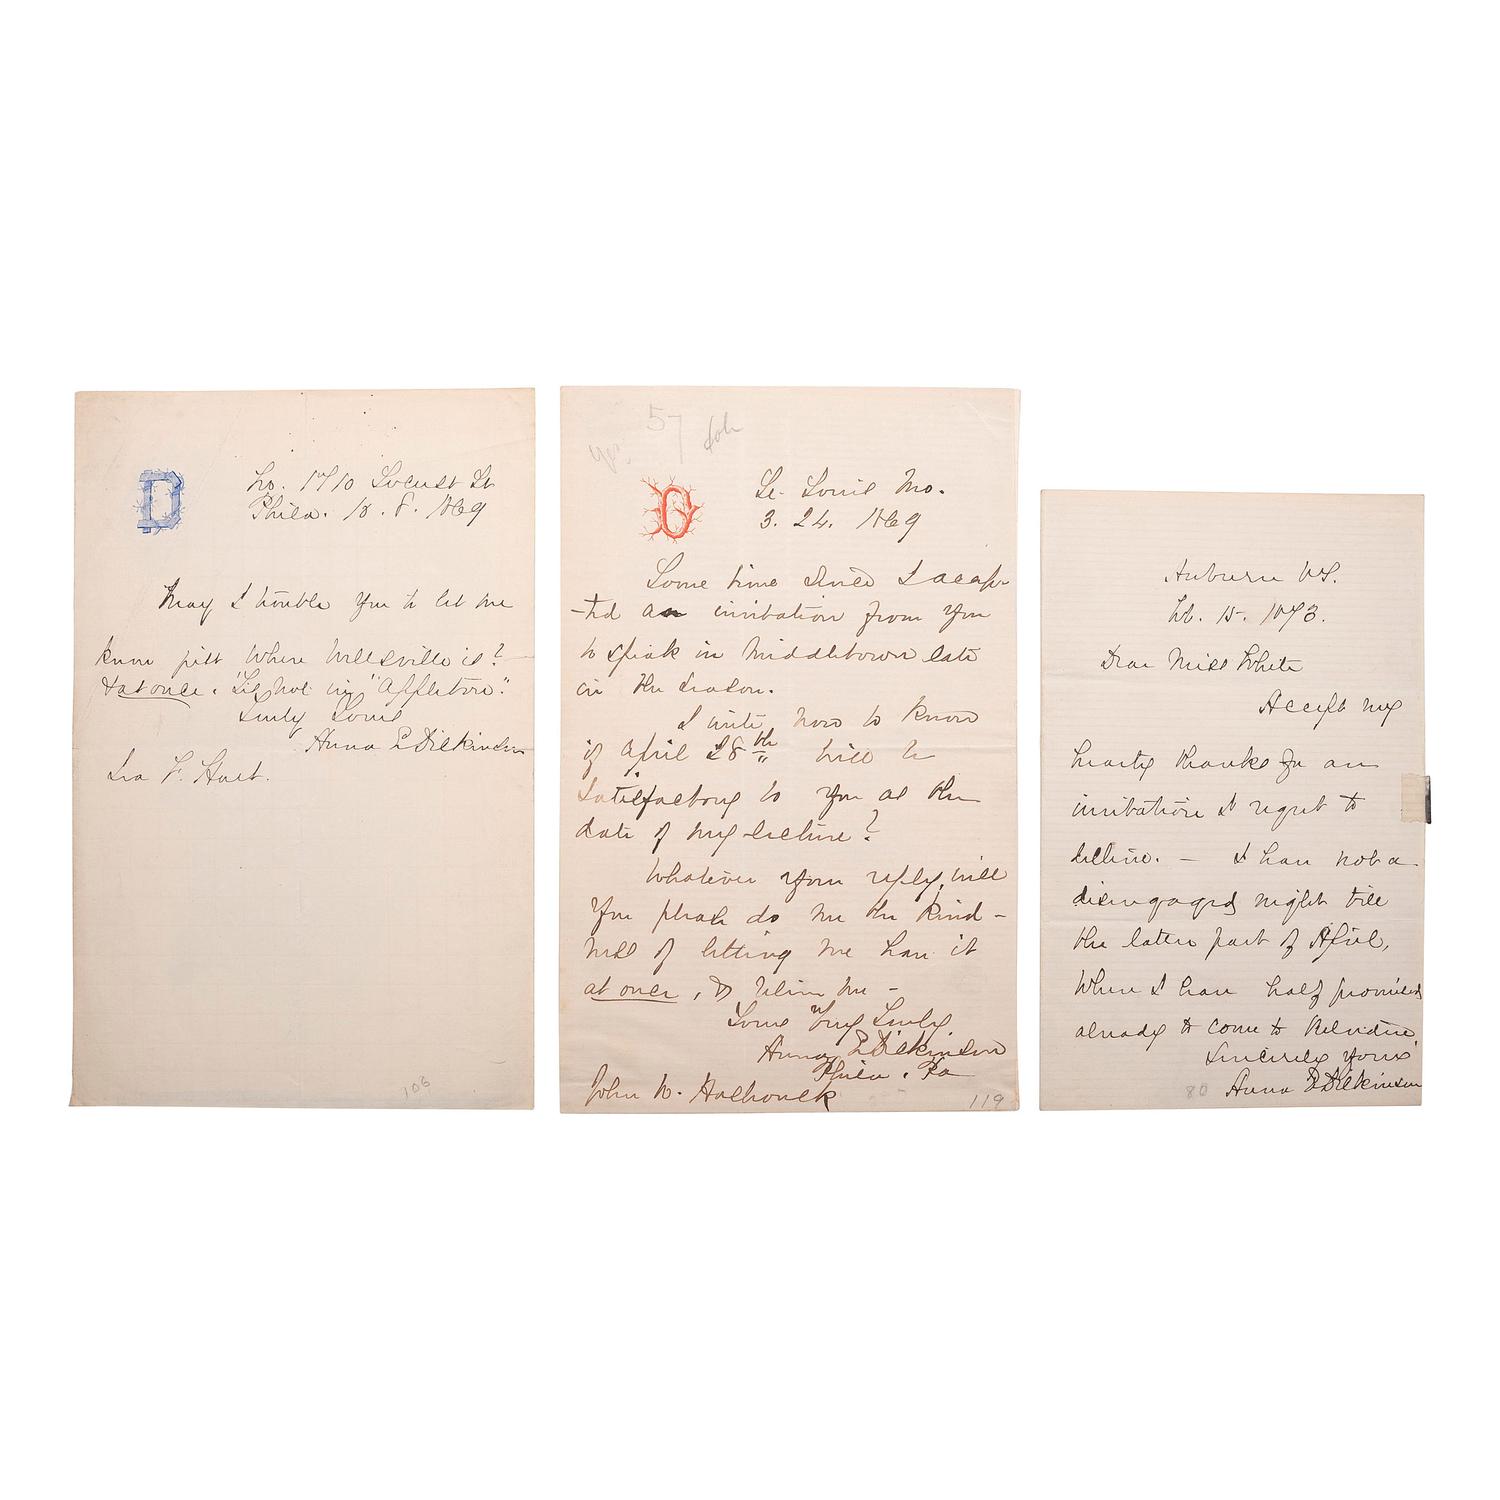 D
No. 1710 Locust St
Phila. 10. 8. 1869
May I trouble you to let me
know just where Wellsville is?
& at once. 'Tis not in "Appleton".
Truly Yours
Anna E Dickinson
Ira F. Hart.
106
57
yes
St. Louis Mo.
3. 24. 1869
Some time since I accep-
-ted an invitation from you
to speak in Middletown late
in the season.
I write now to know
if April 28th will be
satisfactory to you as the
date of my lecture?
Whatever your reply, will
you please do me the kind-
ness of letting me have it
at once, & believe me -
Yours Very Truly
Anna E Dickinson
Phila. Pa
John W.
119
Auburn N.Y.
Feb. 15. 1873.
Dear Miss White
Accept my
hearty thanks for an
invitation I regret to
decline. - I have not a
disengaged night till
the latter part of April,
when I have half promised
already to come to Belvidere.
Sincerely yours
Anna E Dickinson
80